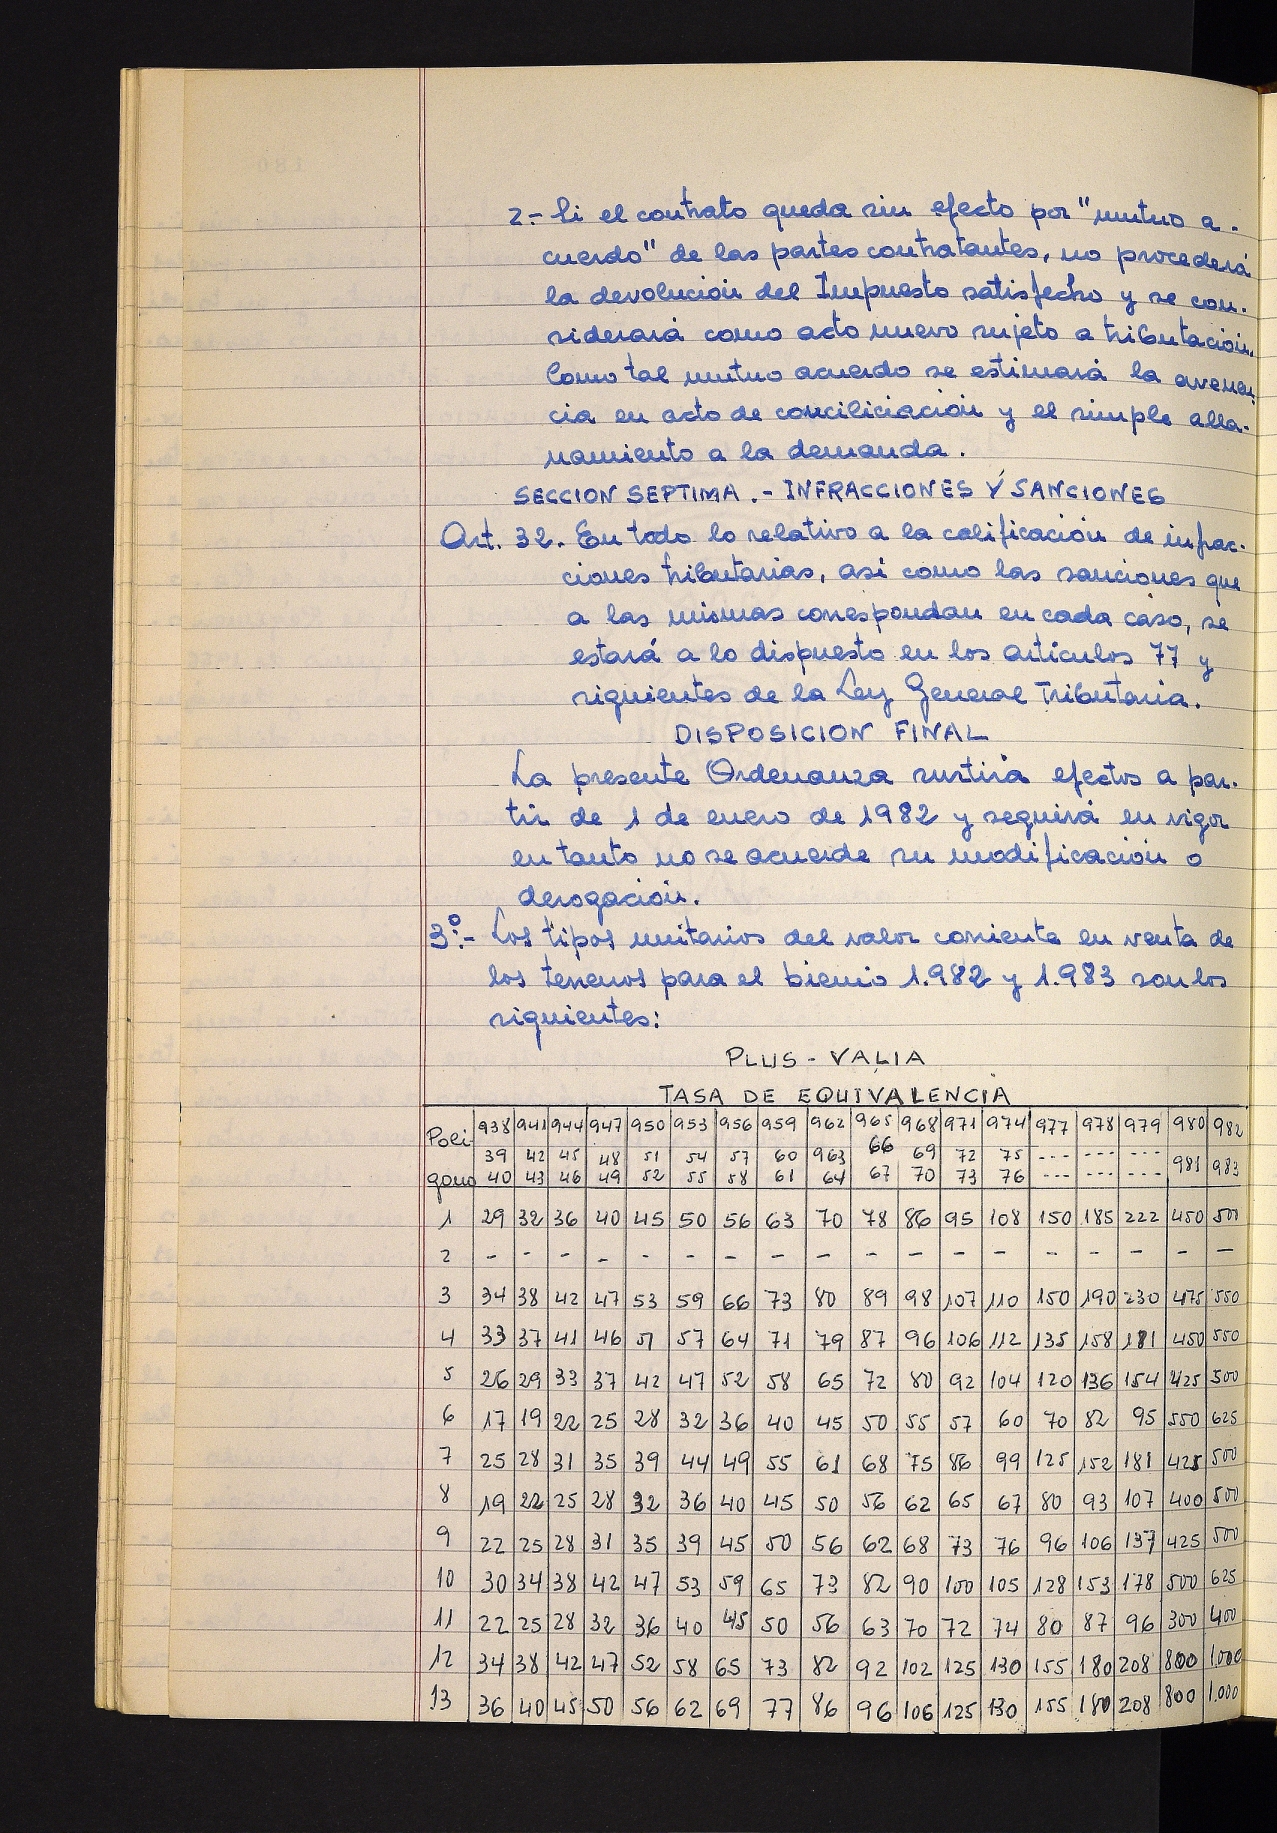 2.- Si el contrato queda sin efecto por "mutuo a-
cuerdo" de las partes contratantes, no procederá
la devolución del Impuesto satisfecho y se con-
siderará como acto nuevo sujeto a tributación.
Como tal mutuo acuerdo se estimará la avenen-
cia en acto de conciliciación y el simple alla-
namiento a la demanda.
SECCION SEPTIMA.- INFRACCIONES Y SANCIONES
Art. 32. En todo lo relativo a la calificación de infrac-
ciones tributarias, así como las sanciones que
a las mismas correspondan en cada caso, se
estará a lo dispuesto en los artículos 77 y
siguientes de la Ley General Tributaria.
DISPOSICION FINAL
La presente Ordenanza surtirá efectos a par-
tir de 1 de enero de 1982 y seguirá en vigor
en tanto no se acuerde su modificación o
derogación.
3º.- Los tipos unitarios del valor corriente en venta de
los terrenos para el bienio 1.982 y 1.983 son los
siguientes:
PLUS-VALIA
TASA DE EQUIVALENCIA
Polí 938 941 944 947 950 953 956 959 962 965 968 971 974 977 978 979 980 982
39 42 45 48 51 54 57 60 963 66 69 72 75 --- --- --- 981 983
gono 40 43 46 49 52 55 58 61 64 67 70 73 76 --- --- ---
1 29 32 36 40 45 50 56 63 70 78 86 95 108 150 185 222 450 500
2 - - - - - - - - - - - - - - - - - -
3 34 38 42 47 53 59 66 73 80 89 98 107 110 150 190 230 475 550
4 33 37 41 46 51 57 64 71 79 87 96 106 112 135 158 181 450 550
5 26 29 33 37 42 47 52 58 65 72 80 92 104 120 136 154 425 500
6 17 19 22 25 28 32 36 40 45 50 55 57 60 70 82 95 550 625
7 25 28 31 35 39 44 49 55 61 68 75 86 99 125 152 181 425 500
8 19 22 25 28 32 36 40 45 50 56 62 65 67 80 93 107 400 500
9 22 25 28 31 35 39 45 50 56 62 68 73 76 96 106 137 425 500
10 30 34 38 42 47 53 59 65 73 82 90 100 105 128 153 178 500 625
11 22 25 28 32 36 40 45 50 56 63 70 72 74 80 87 96 300 400
12 34 38 42 47 52 58 65 73 82 92 102 125 130 155 180 208 800 1.000
13 36 40 45 50 56 62 69 77 86 96 106 125 130 155 180 208 800 1.000